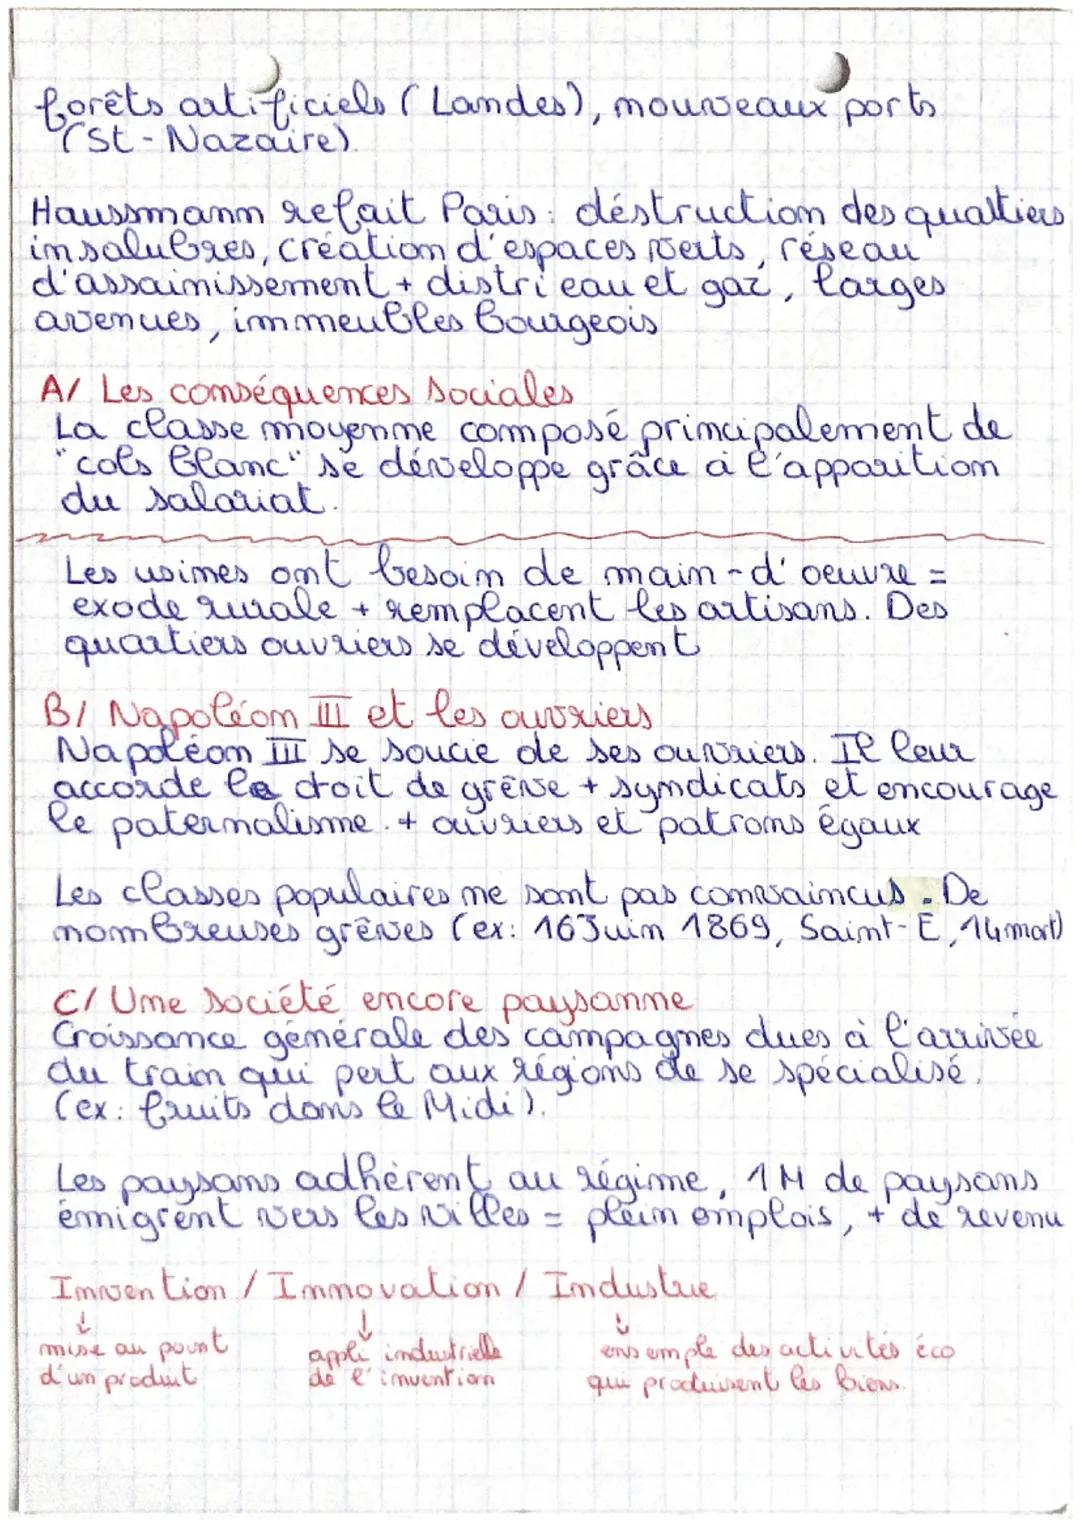 forêts artificiels (Landes), nouveaux ports
(St-Nazaire)
Haussmann refait Paris : déstruction des quartiers
insalubres, création d'espaces verts, réseau
d'assainissement + distri eau et gaz, larges
avenues, immeubles bourgeois
A/ Les conséquences sociales
La classe moyenne composé principalement de
"cols blanc" se développe grâce à l'apparition
du salariat.
Les usines ont besoin de main-d'oeuvre =
exode rurale + remplacent les artisans. Des
quartiers ouvriers se développent
B/ Napoléon III et les ouvriers
Napoléon III se soucie de ses ouvriers. Il leur
accorde le droit de grève + syndicats et encourage
le paternalisme. + ouvriers et patrons égaux
Les classes populaires ne sont pas convaincus. De
nombreuses grèves (ex: 16 Juin 1869, Saint-E, 14 mort)
C/ Une société encore paysanne
Croissance générale des campagnes dues à l'arrivée
du train qui pert aux régions de se spécialisé.
(ex: fruits dans le Midi).
Les paysans adhèrent au régime, 1M de paysans
émigrent vers les villes = plein emplois, + de revenu
Invention / Innovation / Industrie
↓ ↓ ↓
mise au point appli industrielle ensemple des activités éco
d'un produit de l'invention qui produisent les biens.